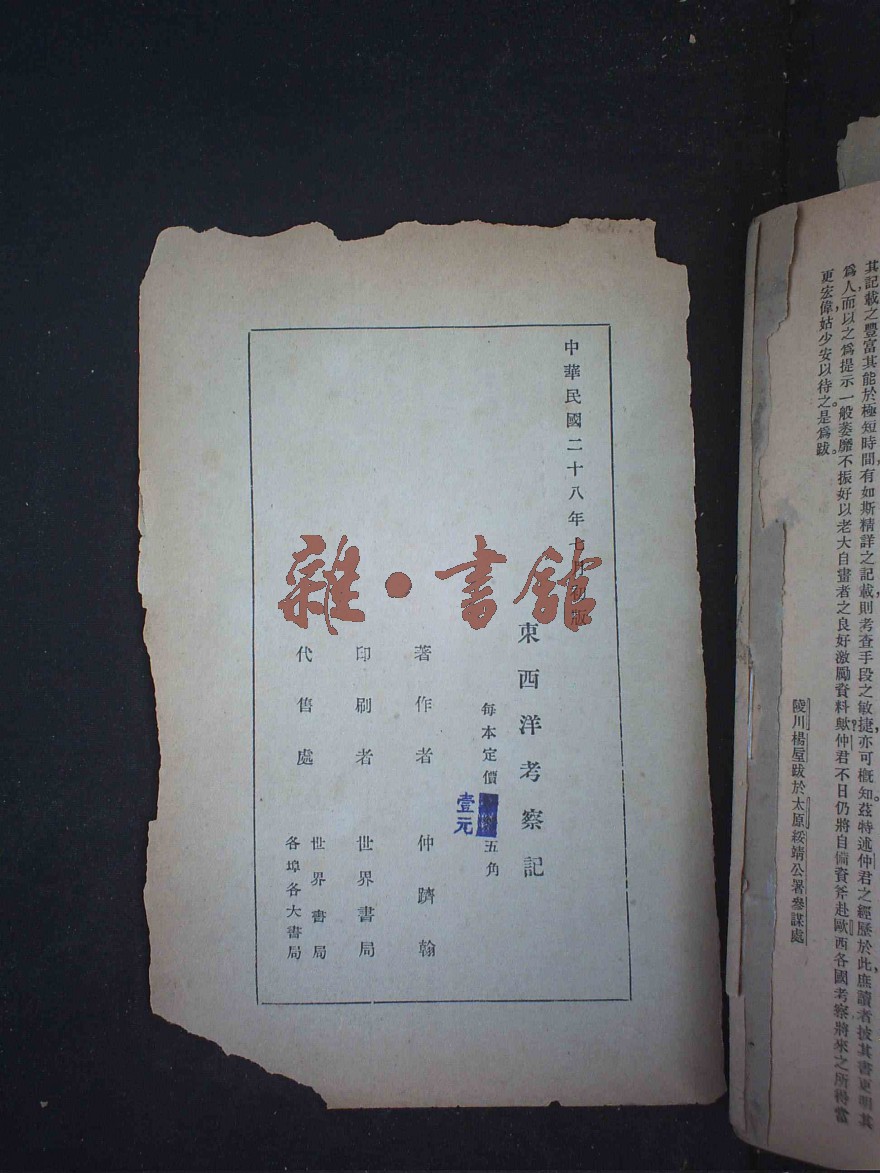 其記載之豐富其能於極短時間有如斯精詳之記載,則考查手段之敏捷,亦可概知。茲特述仲君之經歷於此,庶讀者披其書更明其
爲人,而以之爲提示一般萎靡不振好以老大自畫者之良好激勵資料歟?仲君不日仍將自備資斧赴歐西各國考察將來之所得當
更宏偉,姑少安以待之。是爲跋。
陵川楊屋跋於太原綏靖公署參謀處
中華民國二十八年七月初版
東西洋考察記
每本定價 五角
壹元
著作者 仲躋翰
印刷者 世界書局
代售處 世界書局
各埠各大書局
雜・書館